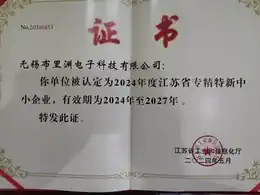 证书
无锡布里渊电子科技有限公司:
你单位被认定为2024年度江苏省专精特新中
小企业，有效期为2024年至2027年。
特发此证。
江苏省工业和信息化厅
二〇二四年五月